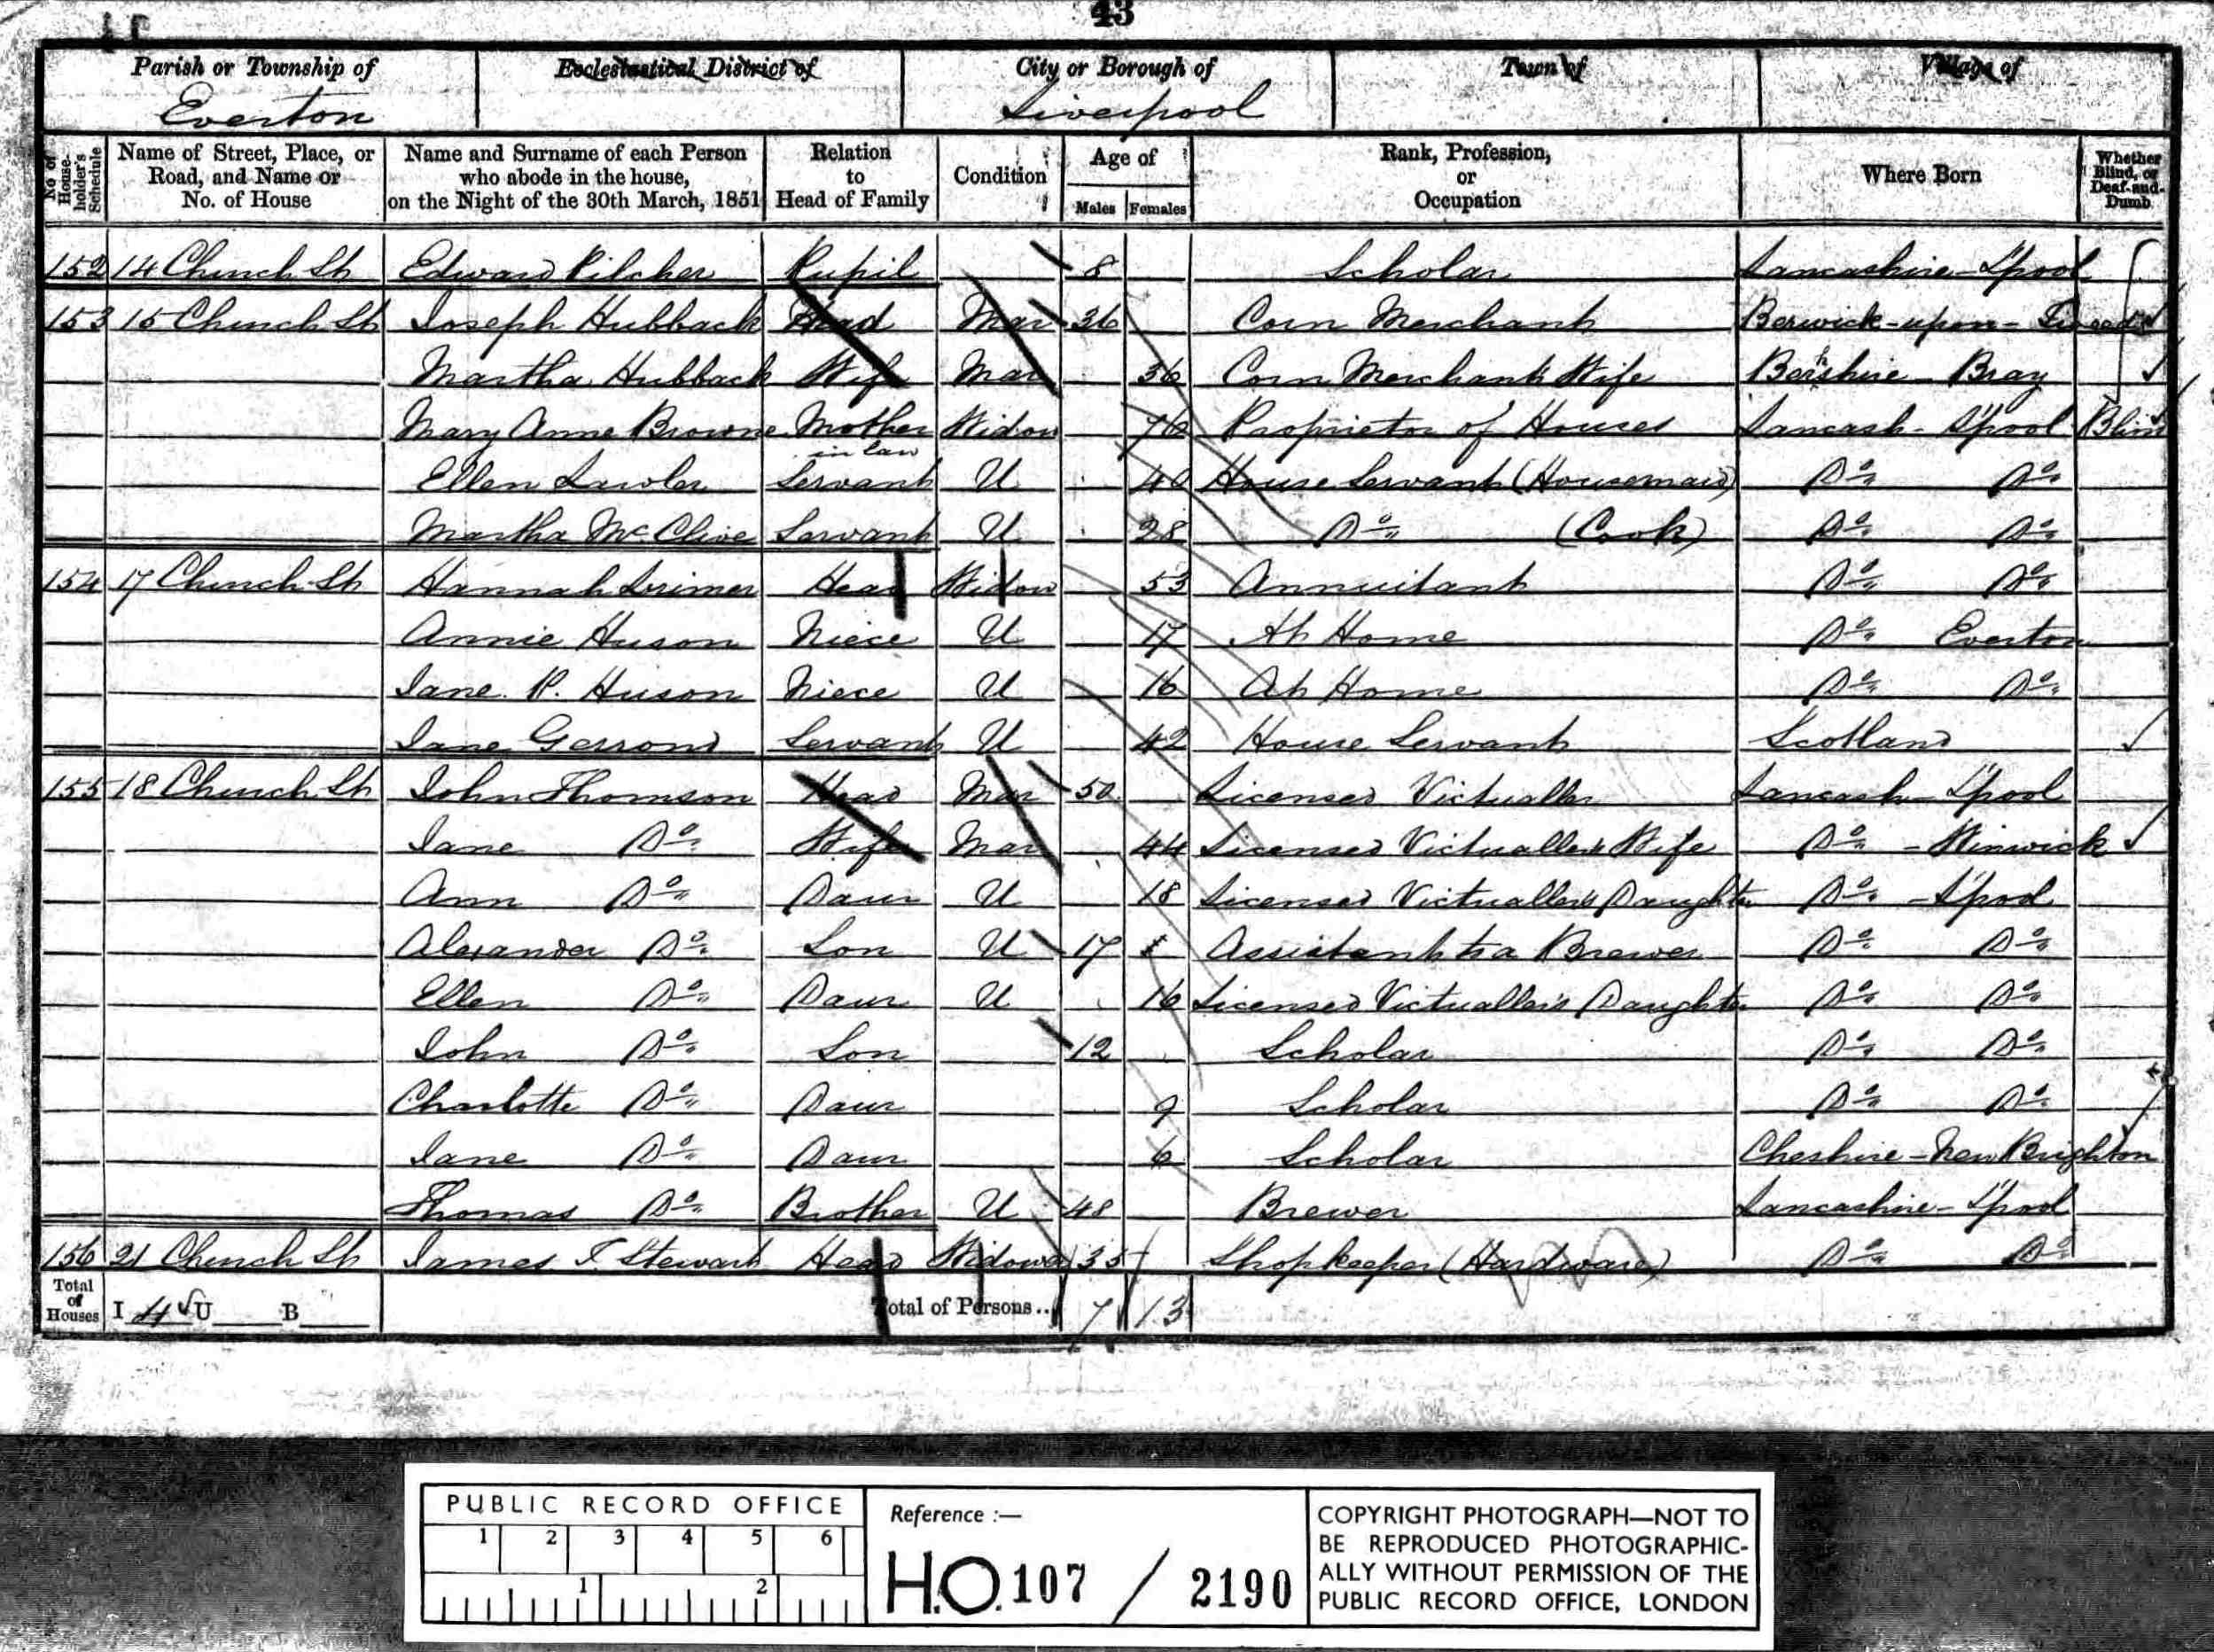 43
Parish or Township of Ecclesiastical District of City or Borough of Town of Village of
Everton Liverpool
No of House-holder's Schedule Name of Street, Place, or Road, and Name or No. of House Name and Surname of each Person who abode in the house, on the Night of the 30th March, 1851 Relation to Head of Family Condition Age of Males Females Rank, Profession, or Occupation Where Born Whether Blind, or Deaf-and-Dumb
152 14 Church St Edward Pilcher Pupil 8 Scholar Lancashire - L'pool
153 15 Church St Joseph Hubback Head Mar 36 Corn Merchant Berwick-upon-Tweed
Martha Hubback Wife Mar 36 Corn Merchant's Wife Berkshire - Bray
Mary Anne Browne Mother in law Widow 76 Proprietor of Houses Lancash - L'pool Blind
Ellen Lawler Servant U 40 House Servant (Housemaid) Do Do
Martha McClive Servant U 28 Do (Cook) Do Do
154 17 Church St Hannah Lrimer Head Widow 53 Annuitant Do Do
Annie Huson Niece U 17 At Home Do Everton
Jane P. Huson Niece U 16 At Home Do Do
Jane Gerrond Servant U 42 House Servant Scotland
155 18 Church St John Thomson Head Mar 50 Licensed Victualler Lancash - L'pool
Jane Do Wife Mar 44 Licensed Victualler's Wife Do - Winwick
Ann Do Daur U 18 Licensed Victualler's Daughter Do - L'pool
Alexander Do Son U 17 Assistant to a Brewer Do Do
Ellen Do Daur U 16 Licensed Victualler's Daughter Do Do
John Do Son 12 Scholar Do Do
Charlotte Do Daur 9 Scholar Do Do
Jane Do Daur 6 Scholar Cheshire - New Brighton
Thomas Do Brother U 48 Brewer Lancashire - L'pool
156 21 Church St James T. Stewart Head Widower 35 Shopkeeper (Hardware) Do Do
Total of Houses I 4 U B Total of Persons.. 7 13
PUBLIC RECORD OFFICE
1 2 3 4 5 6
1 2
Reference :—
H.O. 107 / 2190
COPYRIGHT PHOTOGRAPH—NOT TO
BE REPRODUCED PHOTOGRAPHIC-
ALLY WITHOUT PERMISSION OF THE
PUBLIC RECORD OFFICE, LONDON